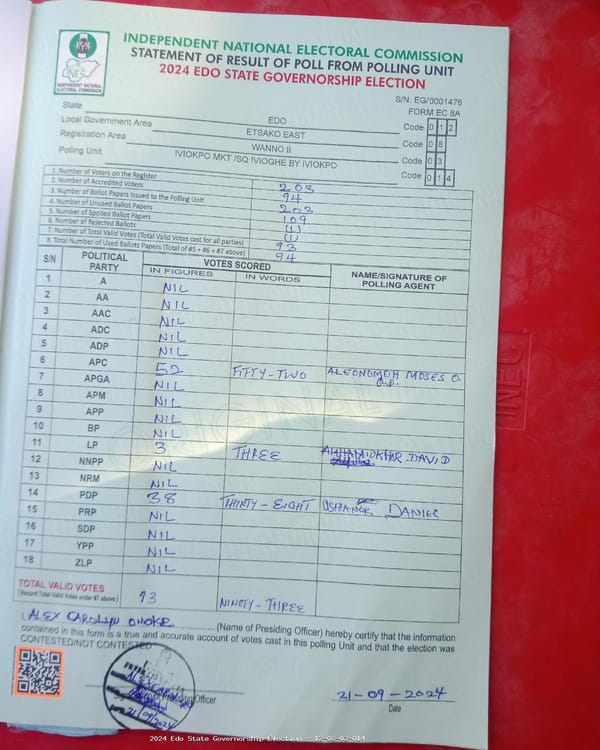 INDEPENDENT NATIONAL ELECTORAL COMMISSION
STATEMENT OF RESULT OF POLL FROM POLLING UNIT
2024 EDO STATE GOVERNORSHIP ELECTION
INDEPENDENT NATIONAL
ELECTORAL COMMISSION
S/N: EG/0001476
FORM EC 8A
State EDO Code 0 1 2
Local Government Area ETSAKO EAST Code 0 8
Registration Area WANNO II Code 0 3
Polling Unit IVIOKPO MKT /SQ IVIOGHE BY IVIOKPO Code 0 1 4
1. Number of Voters on the Register 203
2. Number of Accredited Voters 94
3. Number of Ballot Papers Issued to the Polling Unit 203
4. Number of Unused Ballot Papers 109
5. Number of Spoiled Ballot Papers (1)
6. Number of Rejected Ballots (1)
7. Number of Total Valid Votes (Total Valid Votes cast for all parties) 93
8. Total Number of Used Ballots Papers (Total of #5 + #6 + #7 above) 94
S/N POLITICAL PARTY VOTES SCORED NAME/SIGNATURE OF POLLING AGENT
IN FIGURES IN WORDS
1 A NIL
2 AA NIL
3 AAC NIL
4 ADC NIL
5 ADP NIL
6 APC 52 FIFTY-TWO ALEONOMOH MOSES O.
7 APGA NIL
8 APM NIL
9 APP NIL
10 BP NIL
11 LP 3 THREE DAVID
12 NNPP NIL
13 NRM NIL
14 PDP 38 THIRTY-EIGHT DANIEL
15 PRP NIL
16 SDP NIL
17 YPP NIL
18 ZLP NIL
TOTAL VALID VOTES 93 NINETY-THREE
(Record Total Valid Votes under #7 above)
I, ALEX CAROLYN OMOKE (Name of Presiding Officer) hereby certify that the information
contained in this form is a true and accurate account of votes cast in this polling Unit and that the election was
CONTESTED/NOT CONTESTED
Presiding Officer
21/09/2024
21-09-2024
Date
INEC
ORIGINAL
2024 Edo State Governorship Election - 12_08_03_014